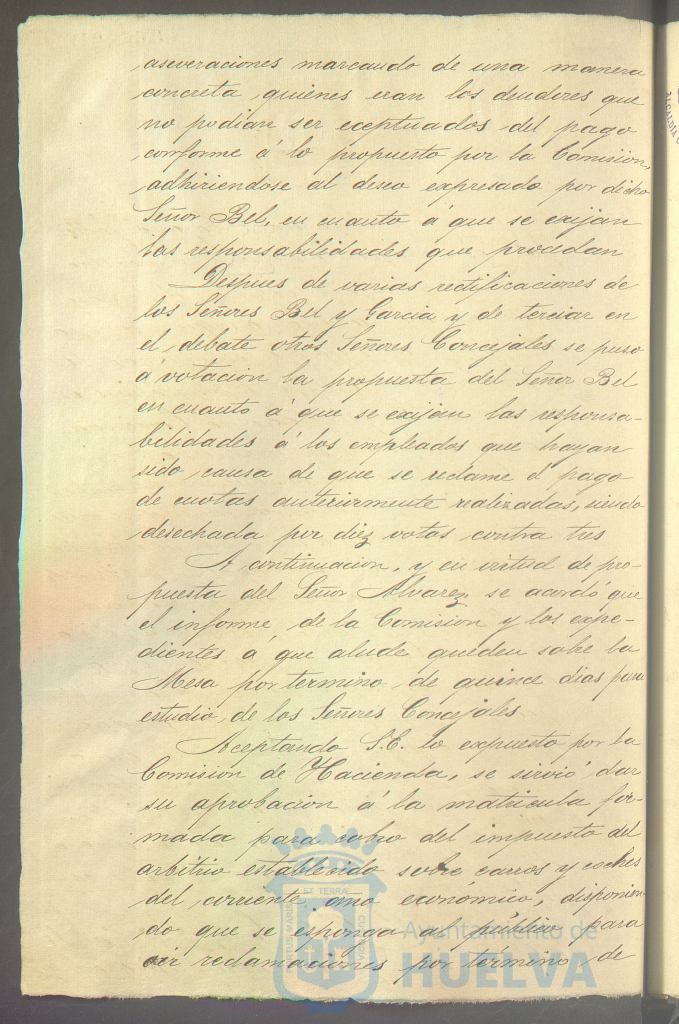 aseveraciones marcando de una manera
concreta quienes eran los deudores que
no podian ser exceptuados del pago
conforme á lo propuesto por la Comision,
adhiriendose al deseo expresado por dicho
Señor Bel, en cuanto á que se exijan
las responsabilidades que procedan
Despues de varias rectificaciones de
los Señores Bel y Garcia y de terciar en
el debate otros Señores Concejales se puso
a votacion la propuesta del Señor Bel
en cuanto á que se exijan las responsa-
bilidades á los empleados que hayan
sido causa de que se reclame el pago
de cuotas anteriormente realizadas, siendo
desechada por diez votos contra tres
A continuacion, y en virtud de pro-
puesta del Señor Alvarez, se acordó que
el informe de la Comision y los expe-
dientes á que alude queden sobre la
Mesa por termino de quince dias para
estudio de los Señores Concejales
Aceptando S.E. lo expuesto por la
Comision de Hacienda, se sirvió dar
su aprobacion á la matricula for-
mada para cobro del impuesto del
arbitrio establecido sobre carros y coches
del corriente ano económico, disponien-
do que se esponga al público para
oir reclamaciones por término de
Ayuntamiento de
HUELVA
ET TERRAE
CUSTODIA